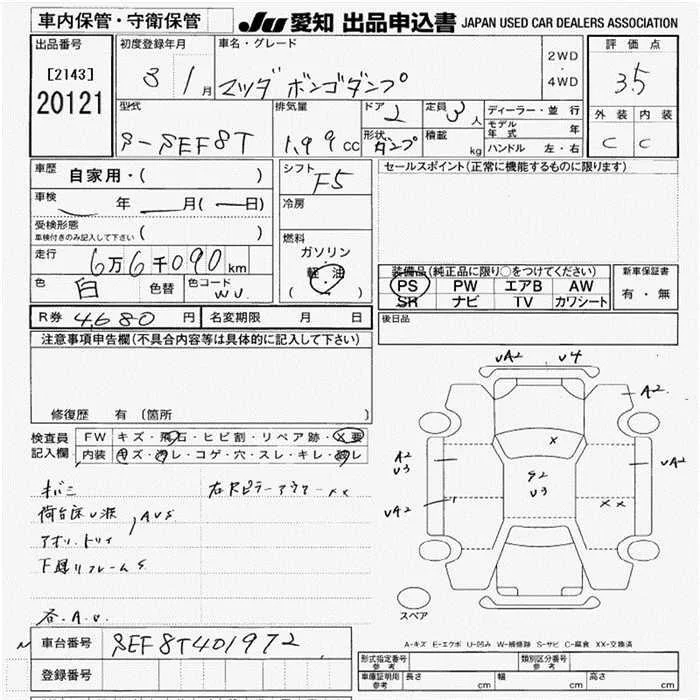 車内保管・守衛保管 JU 愛知 出品申込書 JAPAN USED CAR DEALERS ASSOCIATION
出品番号
[2143]
20121
初度登録年月
3 1月
車名・グレード
マツダ ボンゴダンプ
2WD
・
4WD
評価点
3.5
型式
S-SEF8T
排気量
1.99cc
ドア 2
形状 ダンプ
定員 3人
積載 kg
ディーラー・並行
モデル年式 年
ハンドル 左・右
外装 内装
C C
車歴
自家用・( )
シフト
F5
セールスポイント(正常に機能するものに限ります)
車検
年 月( 日)
冷房
受検形態
車検付きのみ記入して下さい ( )
燃料
ガソリン
・
軽油
( )
走行
6万6千090km
装備品(純正品に限り○をつけてください)
PS PW エアB AW
SR ナビ TV カワシート
新車保証書
有・無
色 白 色替 色コード
W.U.
R券 4680円 名変期限 月 日
後日品
注意事項申告欄(不具合内容等は具体的に記入して下さい)
修復歴 有(箇所 )
検査員
記入欄
FW キズ・飛石・ヒビ割・リペア跡・X要
内装 キズ・汚レ・コゲ・穴・スレ・キレ・破レ
UA2 U4
A2
A2
U3
UA2
UA2
X
S2
U3
XX
キバミ
右Rピラーアウターxx
荷台床U波
AUS
アオリ、トリイ
下廻リフレームS
各.A.U.
スペア
A-キズ E-エクボ U-凹み W-補修跡 S-サビ C-腐食 XX-交換済
車台番号 SEF8T401972
登録番号
形式指定番号
参考
類別区分番号
参考
車庫証明用
参考
長さ cm 幅 cm 高さ cm